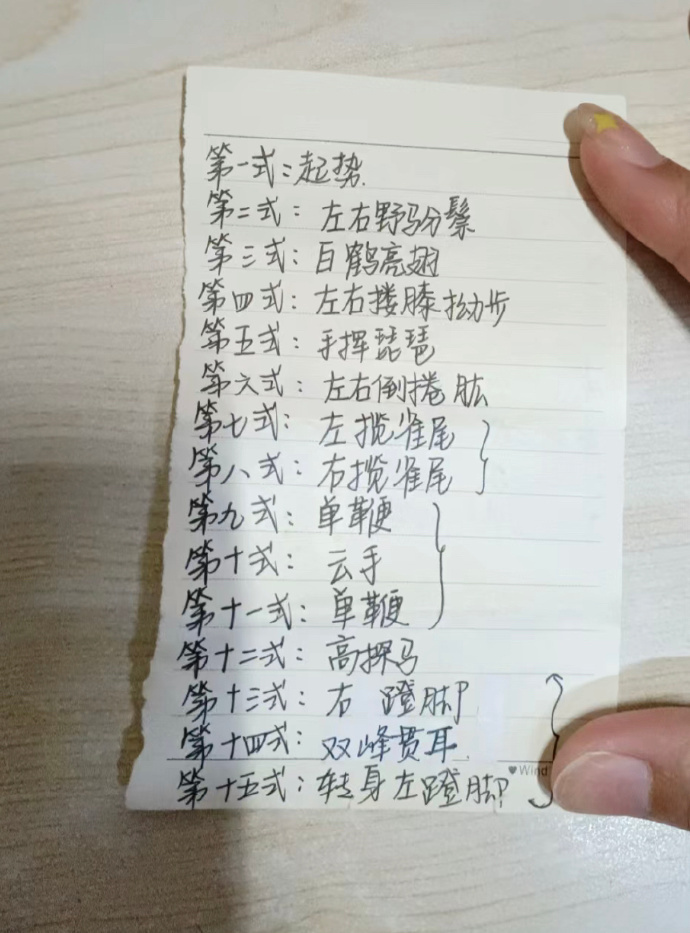 第一式:起势.
第二式:左右野马分鬃
第三式:白鹤亮翅
第四式:左右搂膝拗步
第五式:手挥琵琶
第六式:左右倒捲肱
第七式:左揽雀尾
第八式:右揽雀尾
第九式:单鞭
第十式:云手
第十一式:单鞭
第十二式:高探马
第十三式:右 蹬脚
第十四式:双峰贯耳.
♥Wind
第十五式:转身左蹬脚